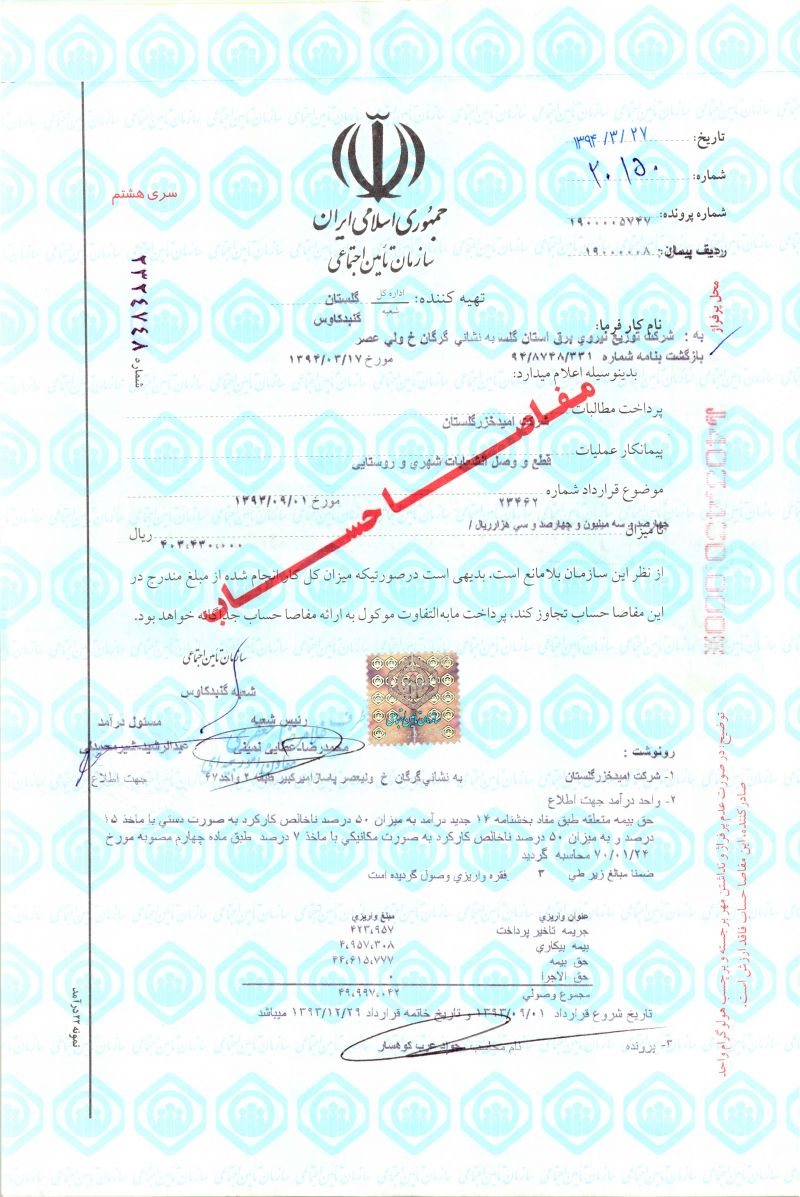 تاریخ: ۱۳۹۴/۳/۲۷
شماره: ۲۰/۵۰
شماره پرونده: ۱۹۰۰۰۰۵۷۴۷
ردیف پیمان: ۱۹۰۰۰۰۰۸
سری هشتم
جمهوری اسلامی ایران
سازمان تأمین اجتماعی
شماره ۲۳۲۴۷۴۸
محل پرفراژ
تهیه کننده: اداره کل گلستان
شعبه گنبدکاوس
نام کارفرما:
به : شرکت توزیع نیروي برق استان گلسـ به نشاني گرگان خ ولي عصر
بازگشت بنامه شماره ۹۴/۸۷۴۸/۳۳۱ مورخ ۱۳۹۴/۰۳/۱۷
بدینوسیله اعلام میدارد:
پرداخت مطالبات شرکت امیدخزرگلستان
پیمانکار عملیات قطع و وصل انشعابات شهري و روستایی
موضوع قرارداد شماره ۲۳۴۶۲ مورخ ۱۳۹۳/۰۹/۰۱
چهارصد و سه میلیون و چهارصد و سي هزارریال /
تا میزان ۴۰۳،۴۳۰،۰۰۰ ریال
مفاصا حساب
از نظر این سازمان بلامانع است، بدیهی است درصورتیکه میزان کل کار انجام شده از مبلغ مندرج در
این مفاصا حساب تجاوز کند، پرداخت مابه‌التفاوت موکول به ارائه مفاصا حساب جداگانه خواهد بود.
سازمان تأمین اجتماعی
شعبه گنبدکاوس
رئیس شعبه
مسئول درآمد
محمدرضا-عطایی ثمینی
عبدالرشید-شیرمحمدلي
رونوشت :
۱- شرکت امیدخزرگلستان به نشاني گرگان خ ولیعصر پاساژامیرکبیر طبقه ۲ واحد۴۷ جهت اطلاع
۲- واحد درآمد جهت اطلاع
حق بیمه متعلقه طبق مفاد بخشنامه ۱۴ جدید درآمد به میزان ۵۰ درصد ناخالص کارکرد به صورت دستي با ماخذ ۱۵
درصد و به میزان ۵۰ درصد ناخالص کارکرد به صورت مکانیکي با ماخذ ۷ درصد طبق ماده چهارم مصوبه مورخ
۷۰/۰۱/۲۴ محاسبه گردید
ضمنا مبالغ زیر طي ۳ فقره واریزي وصول گردیده است
عنوان واریزي مبلغ واریزي
جریمه تاخیر پرداخت ۴۲۳،۹۵۷
بیمه بیکاري ۴،۹۵۷،۳۰۸
حق بیمه ۴۴،۶۱۵،۷۷۷
حق الاجرا ۰
مجموع وصولي ۴۹،۹۹۷،۰۴۲
تاریخ شروع قرارداد ۱۳۹۳/۰۹/۰۱ و تاریخ خاتمه قرارداد ۱۳۹۳/۱۲/۲۹ میباشد
۳- پرونده نام محاسب جواد عرب کوهسار
توضیح: در صورت عدم پرفراژ و نداشتن مهر برجسته و برچسب هولوگرام واحد
صادرکننده، این مفاصا حساب فاقد ارزش است.
نمونه ۲۲ درآمد